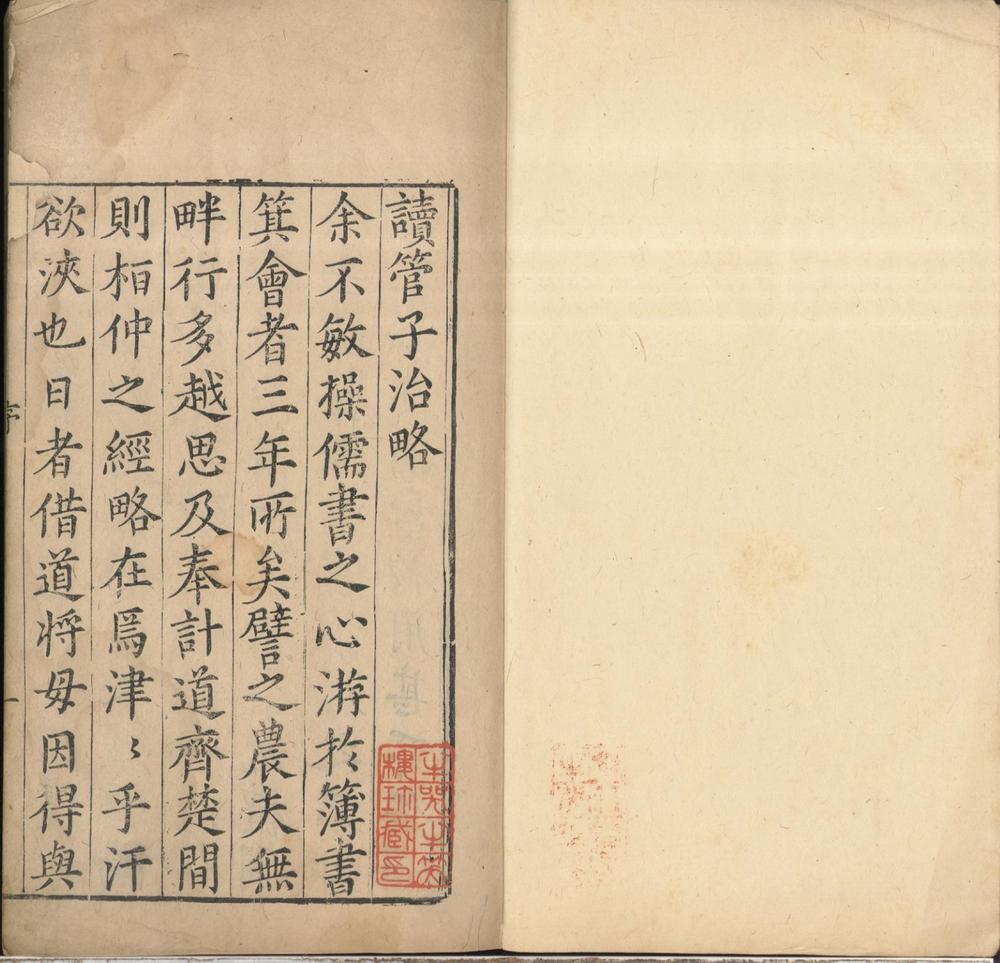 讀管子治略
余不敏操儒書之心游扵簿書
箕會者三年所矣譬之農夫無
畔行多越思及奉計道齊楚間
則栢仲之經略在焉津〻乎汗
欲浹也日者借道將毋因得與
序
一
半哭半笑
樓珎藏印